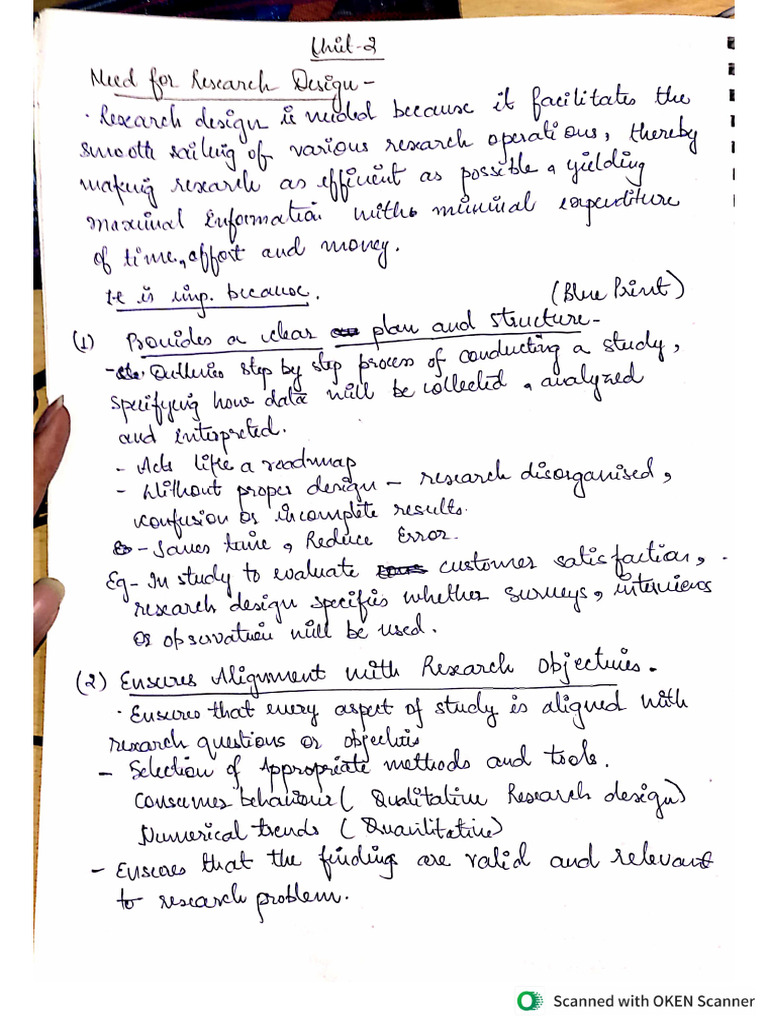 Unit-2
Need for Research Design -
· Research design is needed because it facilitates the
smooth sailing of various research operations, thereby
making research as efficient as possible, yielding
maximal information with minimal expenditure
of time, effort and money.
It is imp. because.
(Blue Print)
(1) Provides a clear plan and structure -
- Outlines step by step process of conducting a study,
specifying how data will be collected, analyzed
and interpreted.
- Acts like a roadmap
- Without proper design - research disorganised,
confusion or incomplete results.
- Saves time, Reduce Error.
Eg- In study to evaluate customer satisfaction,
research design specifies whether surveys, interviews
or observation will be used.
(2) Ensures Alignment with Research Objectives.
· Ensures that every aspect of study is aligned with
research questions or objectives
- Selection of Appropriate methods and tools.
Consumer behaviour ( Qualitative Research design)
Numerical trends ( Quantitative)
- Ensures that the findings are valid and relevant
to research problem.
Scanned with OKEN Scanner